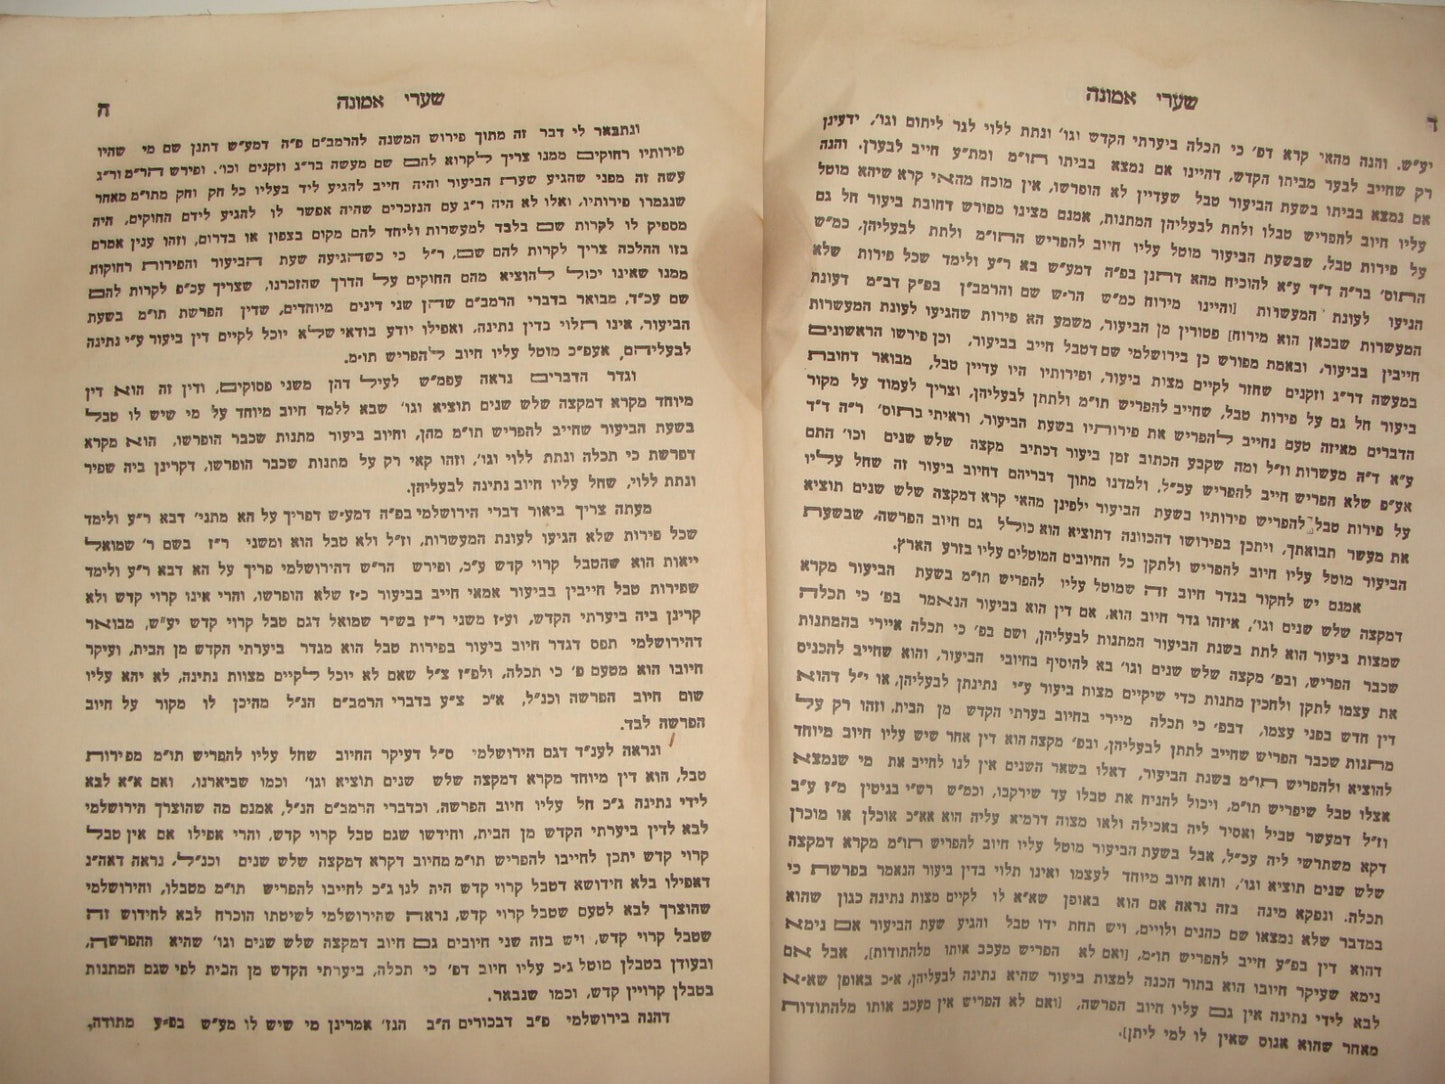 ד
שערי אמונה
יע״ש. והנה מהאי קרא דפ׳ כי תכלה ביערתי הקדש וגו׳ ונתת ללוי לגר ליתום וגו׳, ידעינן
רק שחייב לבער מביתו הקדש, דהיינו אם נמצא בביתו תו״מ ומת״ע חייב לבערן. והנה
אם נמצא בביתו בשעת הביעור טבל שעדיין לא הופרשו, אין מוכח מהאי קרא שיהא מוטל
עליו חיוב להפריש טבלו ולתת לבעליהן המתנות, אמנם מצינו מפורש דחובת ביעור חל גם
על פירות טבל, שבשעת הביעור מוטל עליו חיוב להפריש התו״מ ולתת לבעליהן, כמ״ש
התוס׳ בר״ה ד״ד ע״א להוכיח מהא דתנן בפ״ה דמע״ש בא ר״ע ולימד שכל פירות שלא
הגיעו לעונת המעשרות [והיינו מירוח כמ״ש הר״ש שם והרמב״ן בפ״ק דב״מ דעונת
המעשרות שבכאן הוא מירוח] פטורין מן הביעור, משמע הא פירות שהגיעו לעונת המעשרות
חייבין בביעור, ובאמת מפורש כן בירושלמי שם דטבל חייב בביעור, וכן פירשו הראשונים
במעשה דר״ג וזקנים שחזר לקיים מצות ביעור, ופירותיו היו עדיין טבל, מבואר דחובת
ביעור חל גם על פירות טבל, שחייב להפריש תו״מ ולתתן לבעליהן, וצריך לעמוד על מקור
הדברים מאיזה טעם נחייב להפריש את פירותיו בשעת הביעור, וראיתי בתוס׳ ר״ה ד״ד
ע״א ד״ה מעשרות וז״ל ומה שקבע הכתוב זמן ביעור דכתיב מקצה שלש שנים וכו׳ התם
אע״פ שלא הפריש חייב להפריש עכ״ל, ולמדנו מתוך דבריהם דחיוב ביעור זה שחל עליו
על פירות טבל להפריש פירותיו בשעת הביעור ילפינן מהאי קרא דמקצה שלש שנים תוציא
את מעשר תבואתך, ויתכן בפירושו דהכוונה דתוציא הוא כולל גם חיוב הפרשה, שבשעת
הביעור מוטל עליו חיוב להפריש ולתקן כל החיובים המוטלים עליו בזרע הארץ.
אמנם יש לחקור בגדר חיוב זה שמוטל עליו להפריש תו״מ בשעת הביעור מקרא
דמקצה שלש שנים וגו׳, איזהו גדר חיוב הוא, אם דין הוא בביעור הנאמר בפ׳ כי תכלה
שמצות ביעור הוא לתת בשנת הביעור המתנות לבעליהן, ושם בפ׳ כי תכלה איירי בהמתנות
שכבר הפריש, ובפ׳ מקצה שלש שנים וגו׳ בא להוסיף בחיובי הביעור, והוא שחייב להכניס
את עצמו לתקן ולהכין מתנות כדי שיקיים מצות ביעור ע״י נתינתן לבעליהן, או י״ל דהוא
דין חדש בפני עצמו, דבפ׳ כי תכלה מיירי בחיוב בערתי הקדש מן הבית, וזהו רק על
מתנות שכבר הפריש שחייב לתתן לבעליהן, ובפ׳ מקצה הוא דין אחר שיש עליו חיוב מיוחד
להוציא ולהפריש תו״מ בשנת הביעור, דאלו בשאר השנים אין לנו לחייב את מי שנמצא
אצלו טבל שיפריש תו״מ, ויכול להניח את טבלו עד שירקבו, וכמ״ש רש״י בגיטין מ״ז ע״ב
וז״ל דמעשר טביל ואסיר ליה באכילה ולאו מצוה דרמיא עליה הוא אא״כ אוכלן או מוכרן
דקא משתרשי ליה עכ״ל, אבל בשעת הביעור מוטל עליו חיוב להפריש תו״מ מקרא דמקצה
שלש שנים תוציא וגו׳, והוא חיוב מיוחד לעצמו ואינו תלוי בדין ביעור הנאמר בפרשת כי
תכלה. ונפקא מינה בזה נראה אם הוא באופן שא״א לו לקיים מצות נתינה כגון שהוא
במדבר שלא נמצאו שם כהנים ולויים, ויש תחת ידו טבל והגיע שעת הביעור אם נימא
דהוא דין בפ״ע חייב להפריש תו״מ, [ואם לא הפריש מעכב אותו מלהתודות], אבל אם
נימא שעיקר חיובו הוא בתור הכנה למצות ביעור שהיא נתינה לבעליהן, א״כ באופן שא״א
לבא לידי נתינה אין גם עליו חיוב הפרשה, [ואם לא הפריש אין מעכב אותו מלהתודות
מאחר שהוא אנוס שאין לו למי ליתן].
שערי אמונה
ה
ונתבאר לי דבר זה מתוך פירוש המשנה להרמב״ם פ״ה דמע״ש דתנן שם מי שהיו
פירותיו רחוקים ממנו צריך לקרוא להם שם מעשה בר״ג וזקנים וכו׳. ופירש הר״מ ור״ג
עשה זה מפני שהגיע שעת הביעור והיה חייב להגיע ליד בעליו כל חק וחק מתו״מ מאחר
שנגמרו פירותיו, ואלו לא היה ר״ג עם הנזכרים שהיה אפשר לו להגיע לידם החוקים, היה
מספיק לו לקרות שם בלבד למעשרות וליחד להם מקום בצפון או בדרום, וזהו ענין אמרם
בזו ההלכה צריך לקרות להם שם, ר״ל כי כשהגיעה שעת הביעור והפירות רחוקות
ממנו שאינו יכול להוציא מהם החוקים על הדרך שהזכרנו, שצריך עכ״פ לקרות להם
שם עכ״ד, מבואר בדברי הרמב״ם שהן שני דינים מיוחדים, שדין הפרשת תו״מ בשעת
הביעור, אינו תלוי בדין נתינה, ואפילו יודע בודאי שלא יוכל לקיים דין ביעור ע״י נתינה
לבעליהם, אעפ״כ מוטל עליו חיוב להפריש תו״מ.
וגדר הדברים נראה עפמ״ש לעיל דהן משני פסוקים, ודין זה הוא דין
מיוחד מקרא דמקצה שלש שנים תוציא וגו׳ שבא ללמד חיוב מיוחד על מי שיש לו טבל
בשעת הביעור שחייב להפריש תו״מ מהן, וחיוב ביעור מתנות שכבר הופרשו, הוא מקרא
דפרשת כי תכלה ונתת ללוי וגו׳, וזהו קאי רק על מתנות שכבר הופרשו, דקרינן ביה שפיר
ונתת ללוי, שחל עליו חיוב נתינה לבעליהן.
מעתה צריך ביאור דברי הירושלמי בפ״ה דמע״ש דפריך על הא מתני׳ דבא ר״ע ולימד
שכל פירות שלא הגיעו לעונת המעשרות, וז״ל ולא טבל הוא ומשני ר״ז בשם ר׳ שמואל
ייאות הוא שהטבל קרוי קדש ע״כ, ופירש הר״ש דהירושלמי פריך על הא דבא ר״ע ולימד
שפירות טבל חייבין בביעור אמאי חייב בביעור כ״ז שלא הופרשו, והרי אינו קרוי קדש ולא
קרינן ביה ביערתי הקדש, וע״ז משני ר״ז בש״ר שמואל דגם טבל קרוי קדש יע״ש, מבואר
דהירושלמי תפס דגדר חיוב ביעור בפירות טבל הוא מגדר ביערתי הקדש מן הבית, ועיקר
חיובו הוא מטעם פ׳ כי תכלה, ולפ״ז צ״ל שאם לא יוכל לקיים מצות נתינה, לא יהא עליו
שום חיוב הפרשה וכנ״ל, א״כ צ״ע בדברי הרמב״ם הנ״ל מהיכן לו מקור על חיוב
הפרשה לבד.
ונראה לענ״ד דגם הירושלמי ס״ל דעיקר החיוב שחל עליו להפריש תו״מ מפירות
טבל, הוא דין מיוחד מקרא דמקצה שלש שנים תוציא וגו׳ וכמו שביארנו, ואם א״א לבא
לידי נתינה ג״כ חל עליו חיוב הפרשה, וכדברי הרמב״ם הנ״ל, אמנם מה שהוצרך הירושלמי
לבא לדין ביערתי הקדש מן הבית, וחידשו שגם טבל קרוי קדש, והרי אפילו אם אין טבל
קרוי קדש יתכן לחייבו להפריש תו״מ מחיוב דקרא דמקצה שלש שנים וכנ״ל, נראה דאה״נ
דאפילו בלא חידושא דטבל קרוי קדש היה לנו ג״כ לחייבו להפריש תו״מ מטבלו, והירושלמי
שהוצרך לבא לטעם שטבל קרוי קדש, נראה שהירושלמי לשיטתו הוכרח לבא לחידוש זה
שטבל קרוי קדש, ויש בזה שני חיובים גם חיוב דמקצה שלש שנים וגו׳ שהיא ההפרשה,
ובעודן בטבלן מוטל ג״כ עליו חיוב דפ׳ כי תכלה, ביערתי הקדש מן הבית לפי שגם המתנות
בטבלן קרויין קדש, וכמו שנבאר.
דהנה בירושלמי פ״ב דבכורים ה״ב הנז׳ אמרינן מי שיש לו מע״ש בפ״ע מתודה,